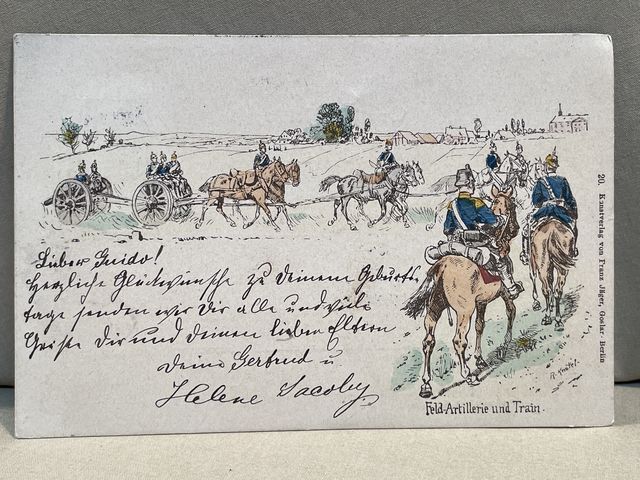 Lieber Guido!
Herzliche Glückwünsche zu Deinem Geburts
tage senden wir Dir alle und viele
Grüße Dir und deinen lieben Eltern
Deine Gertrud u
Helene Jacoby
Feld-Artillerie und Train.
20. Kunstverlag von Franz Jäger, Goslar-Berlin